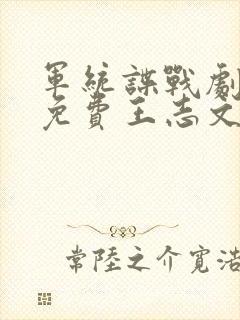 軍統諜戰劇
免費王志文
常陸之介寬浩